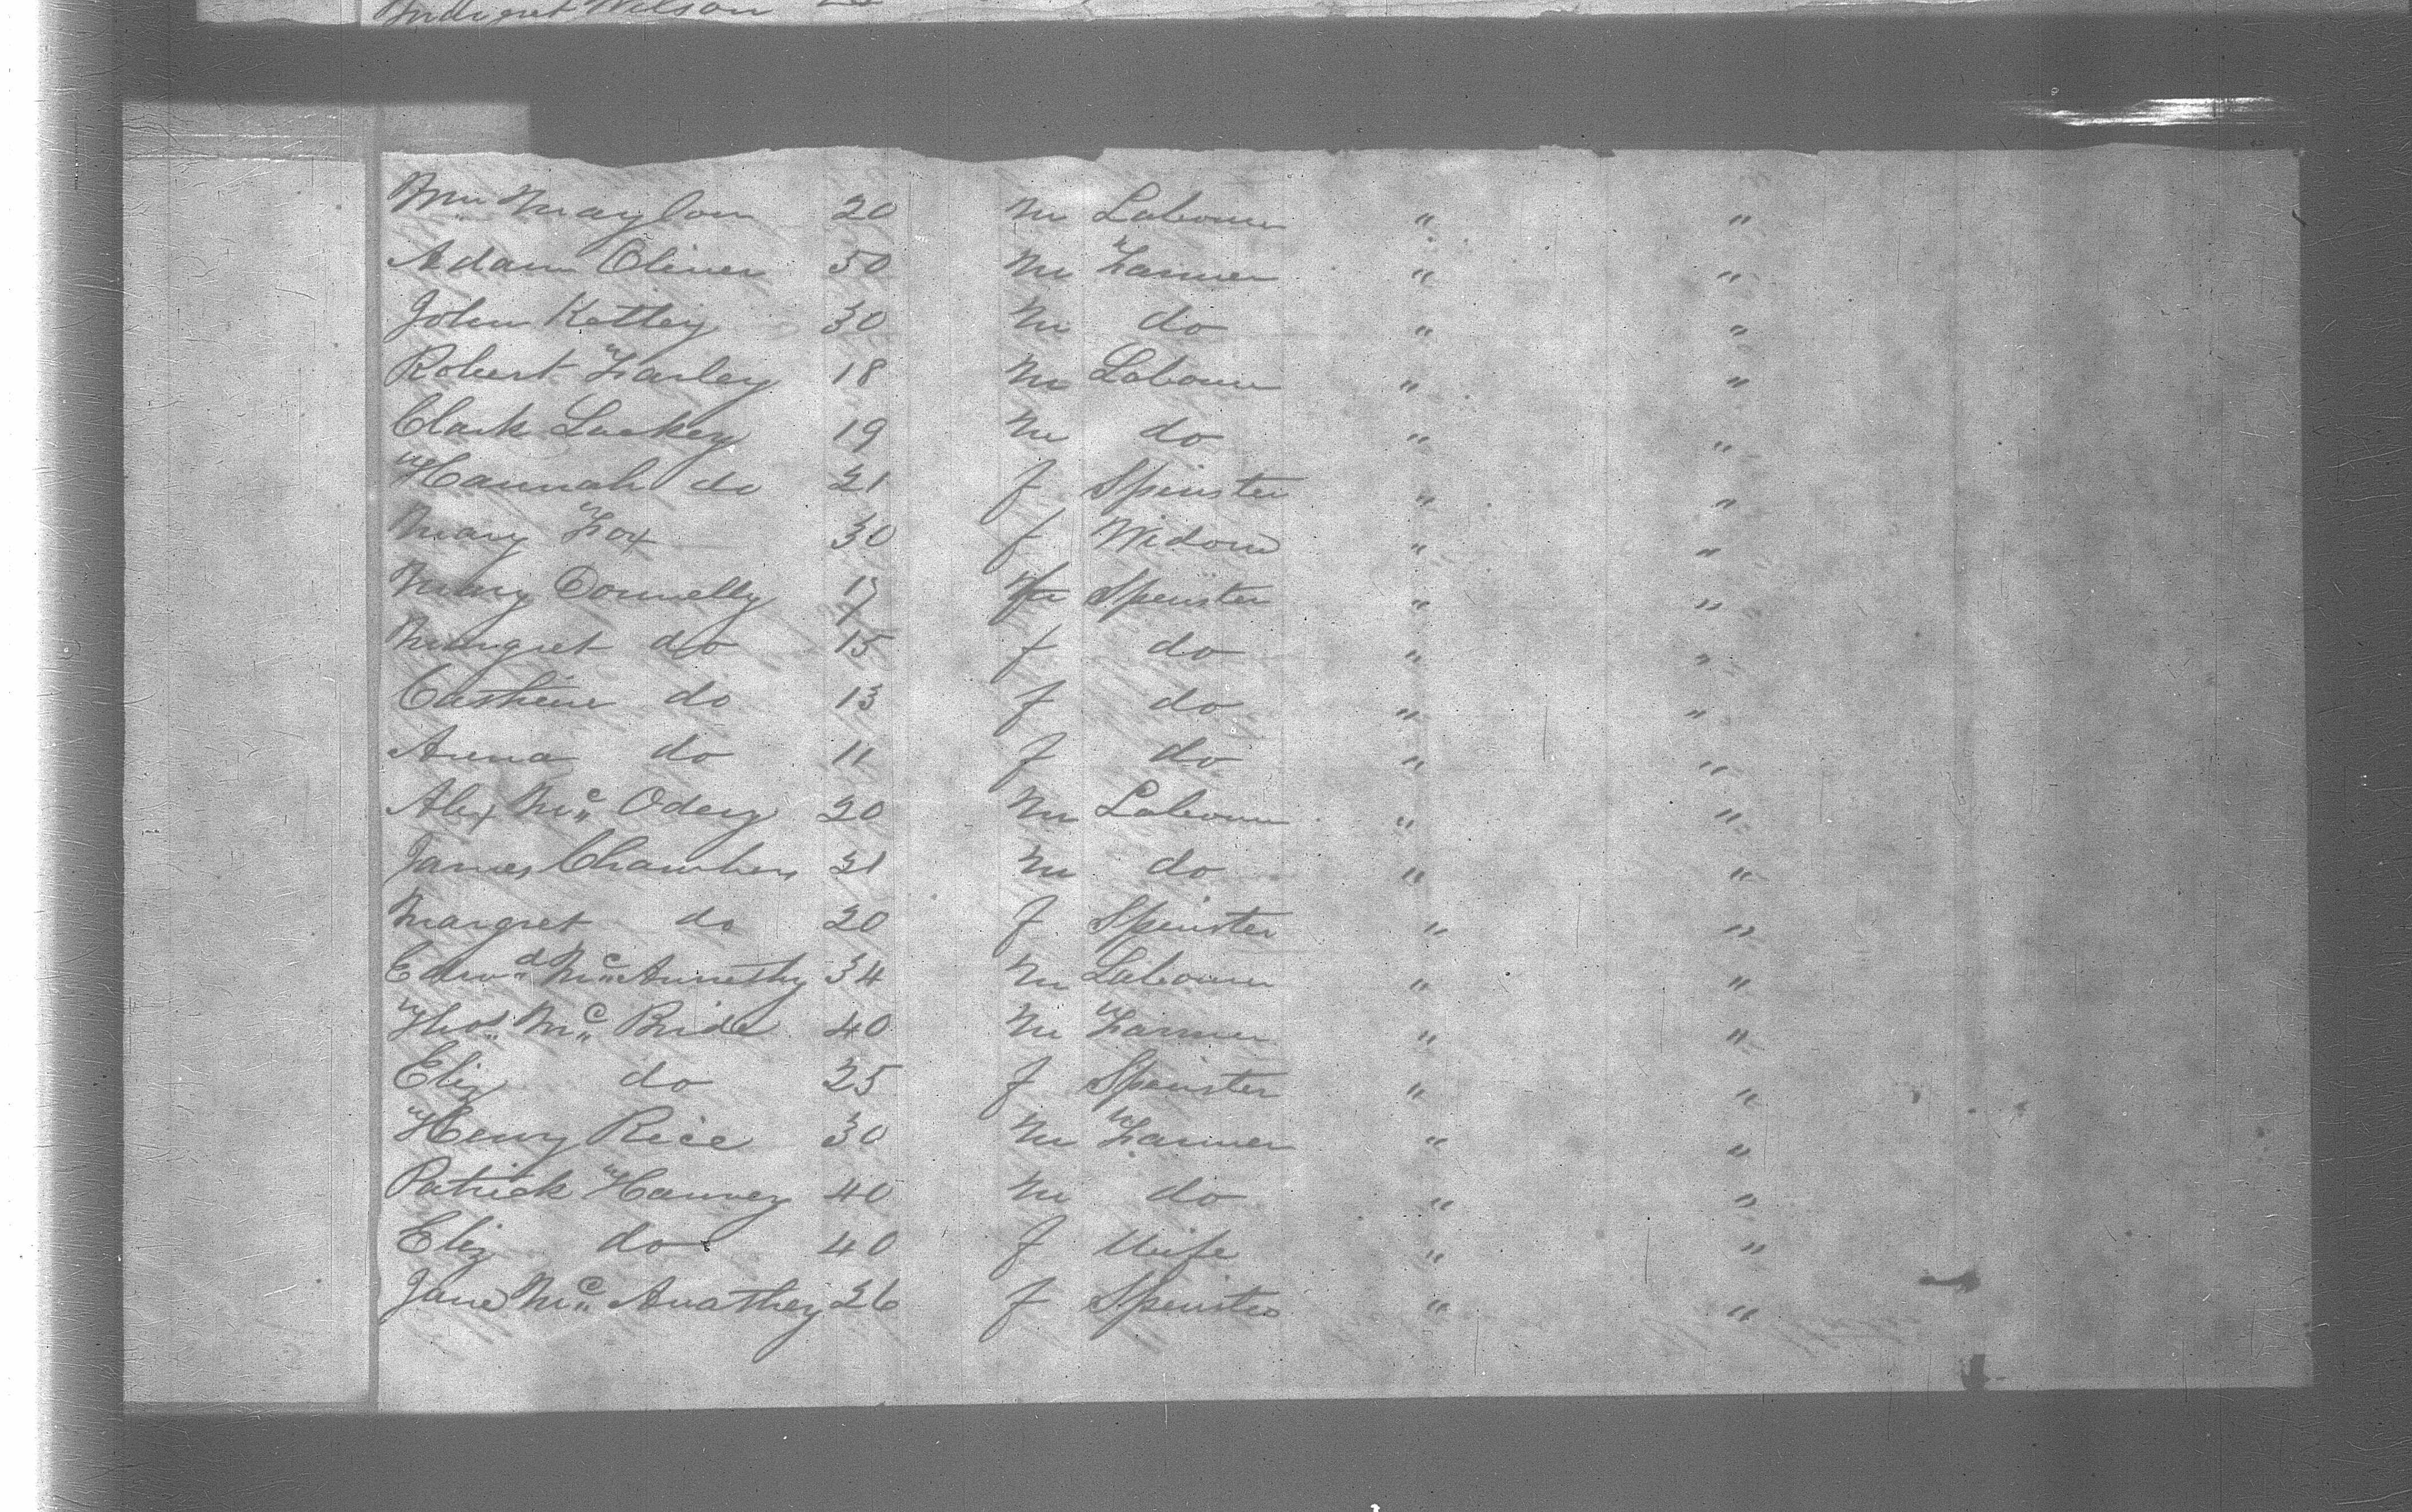 Margret Wilson
Wm Maylon 20 m Labourer " "
Adam Oliver 50 m Farmer " "
John Kettey 30 m do " "
Robert Farley 18 m Labourer " "
Clark Lackey 19 m do " "
Hannah do 21 f Spinster " "
Mary Fox 30 f Widow " "
Mary Donnelly 17 f Spinster " "
Margret do 15 f do " "
Cathrine do 13 f do " "
Anna do 11 f do " "
Alex Mc Odery 20 m Labourer " "
James Chambers 21 m do " "
Margret do 20 f Spinster " "
Edwd Mc Annethy 34 m Labourer " "
Thos Mc Bride 40 m Farmer " "
Eliz do 25 f Spinster " "
Henry Rice 30 m Farmer " "
Patrick Hanvey 40 m do " "
Eliz do 40 f Wife " "
Jane Mc Anathey 26 f Spinster " "